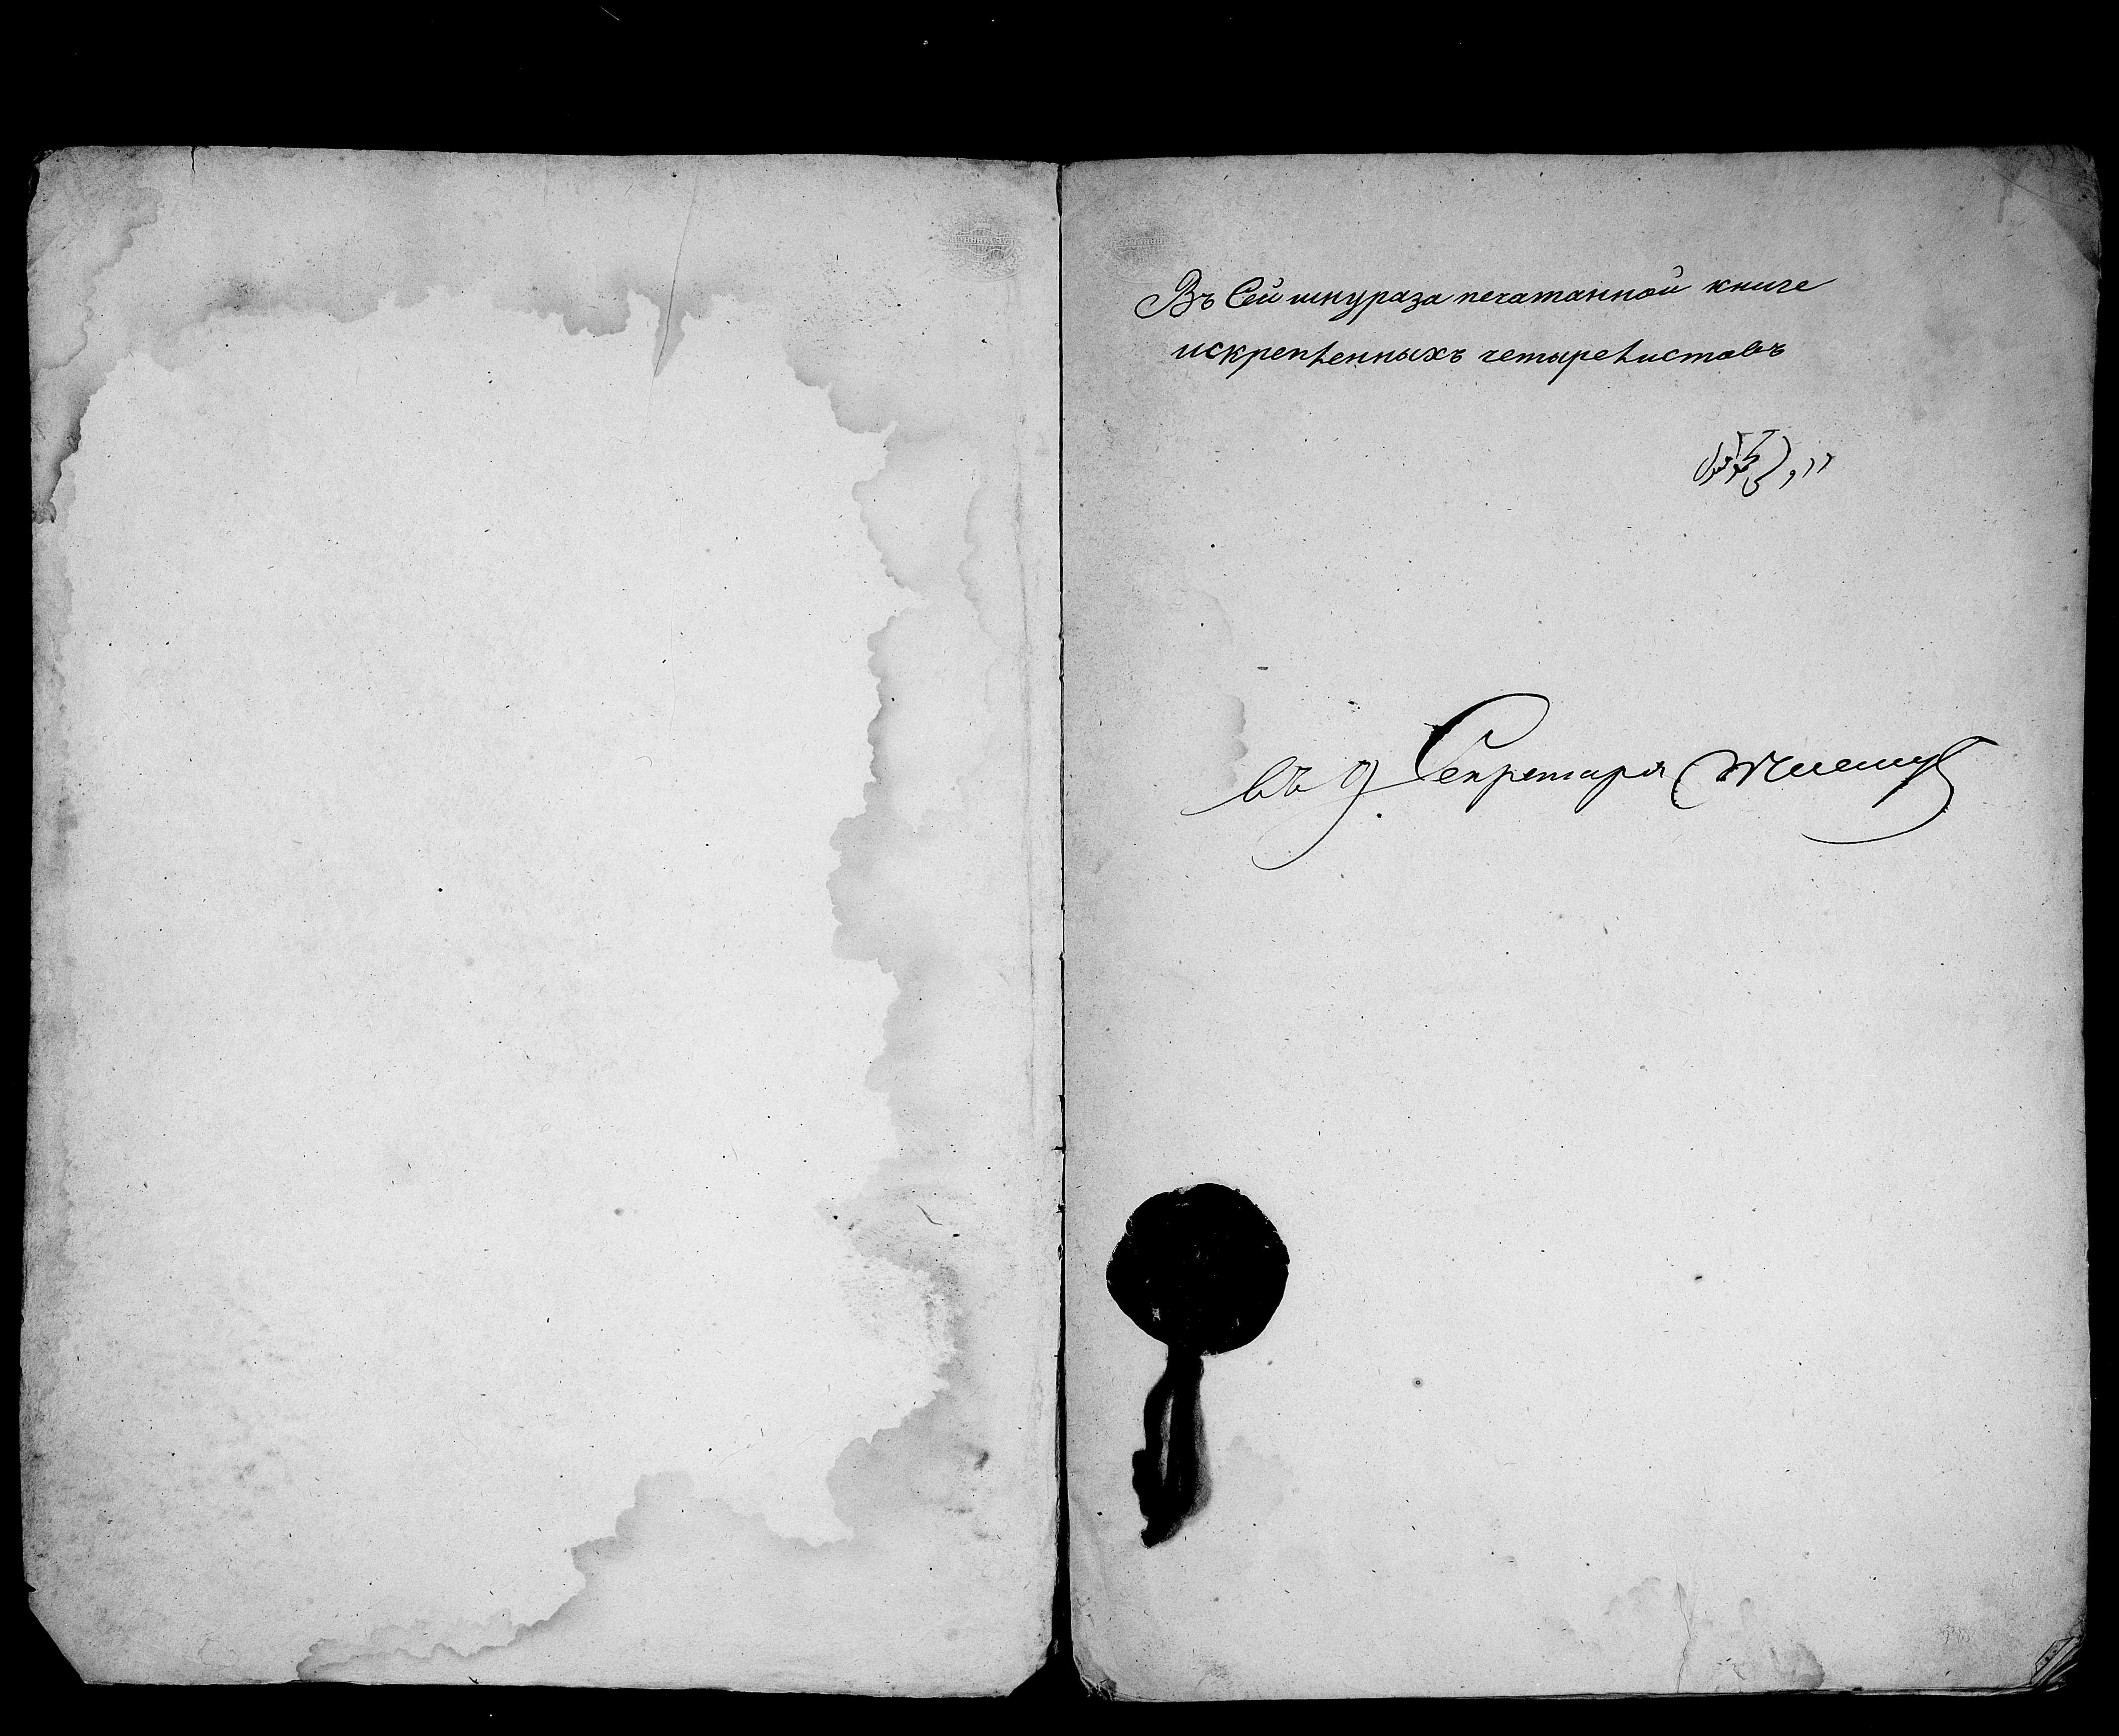 Въ Сей шнураза печатанной книге
искрепленныхъ четыре листовъ
въ д. Секретаря